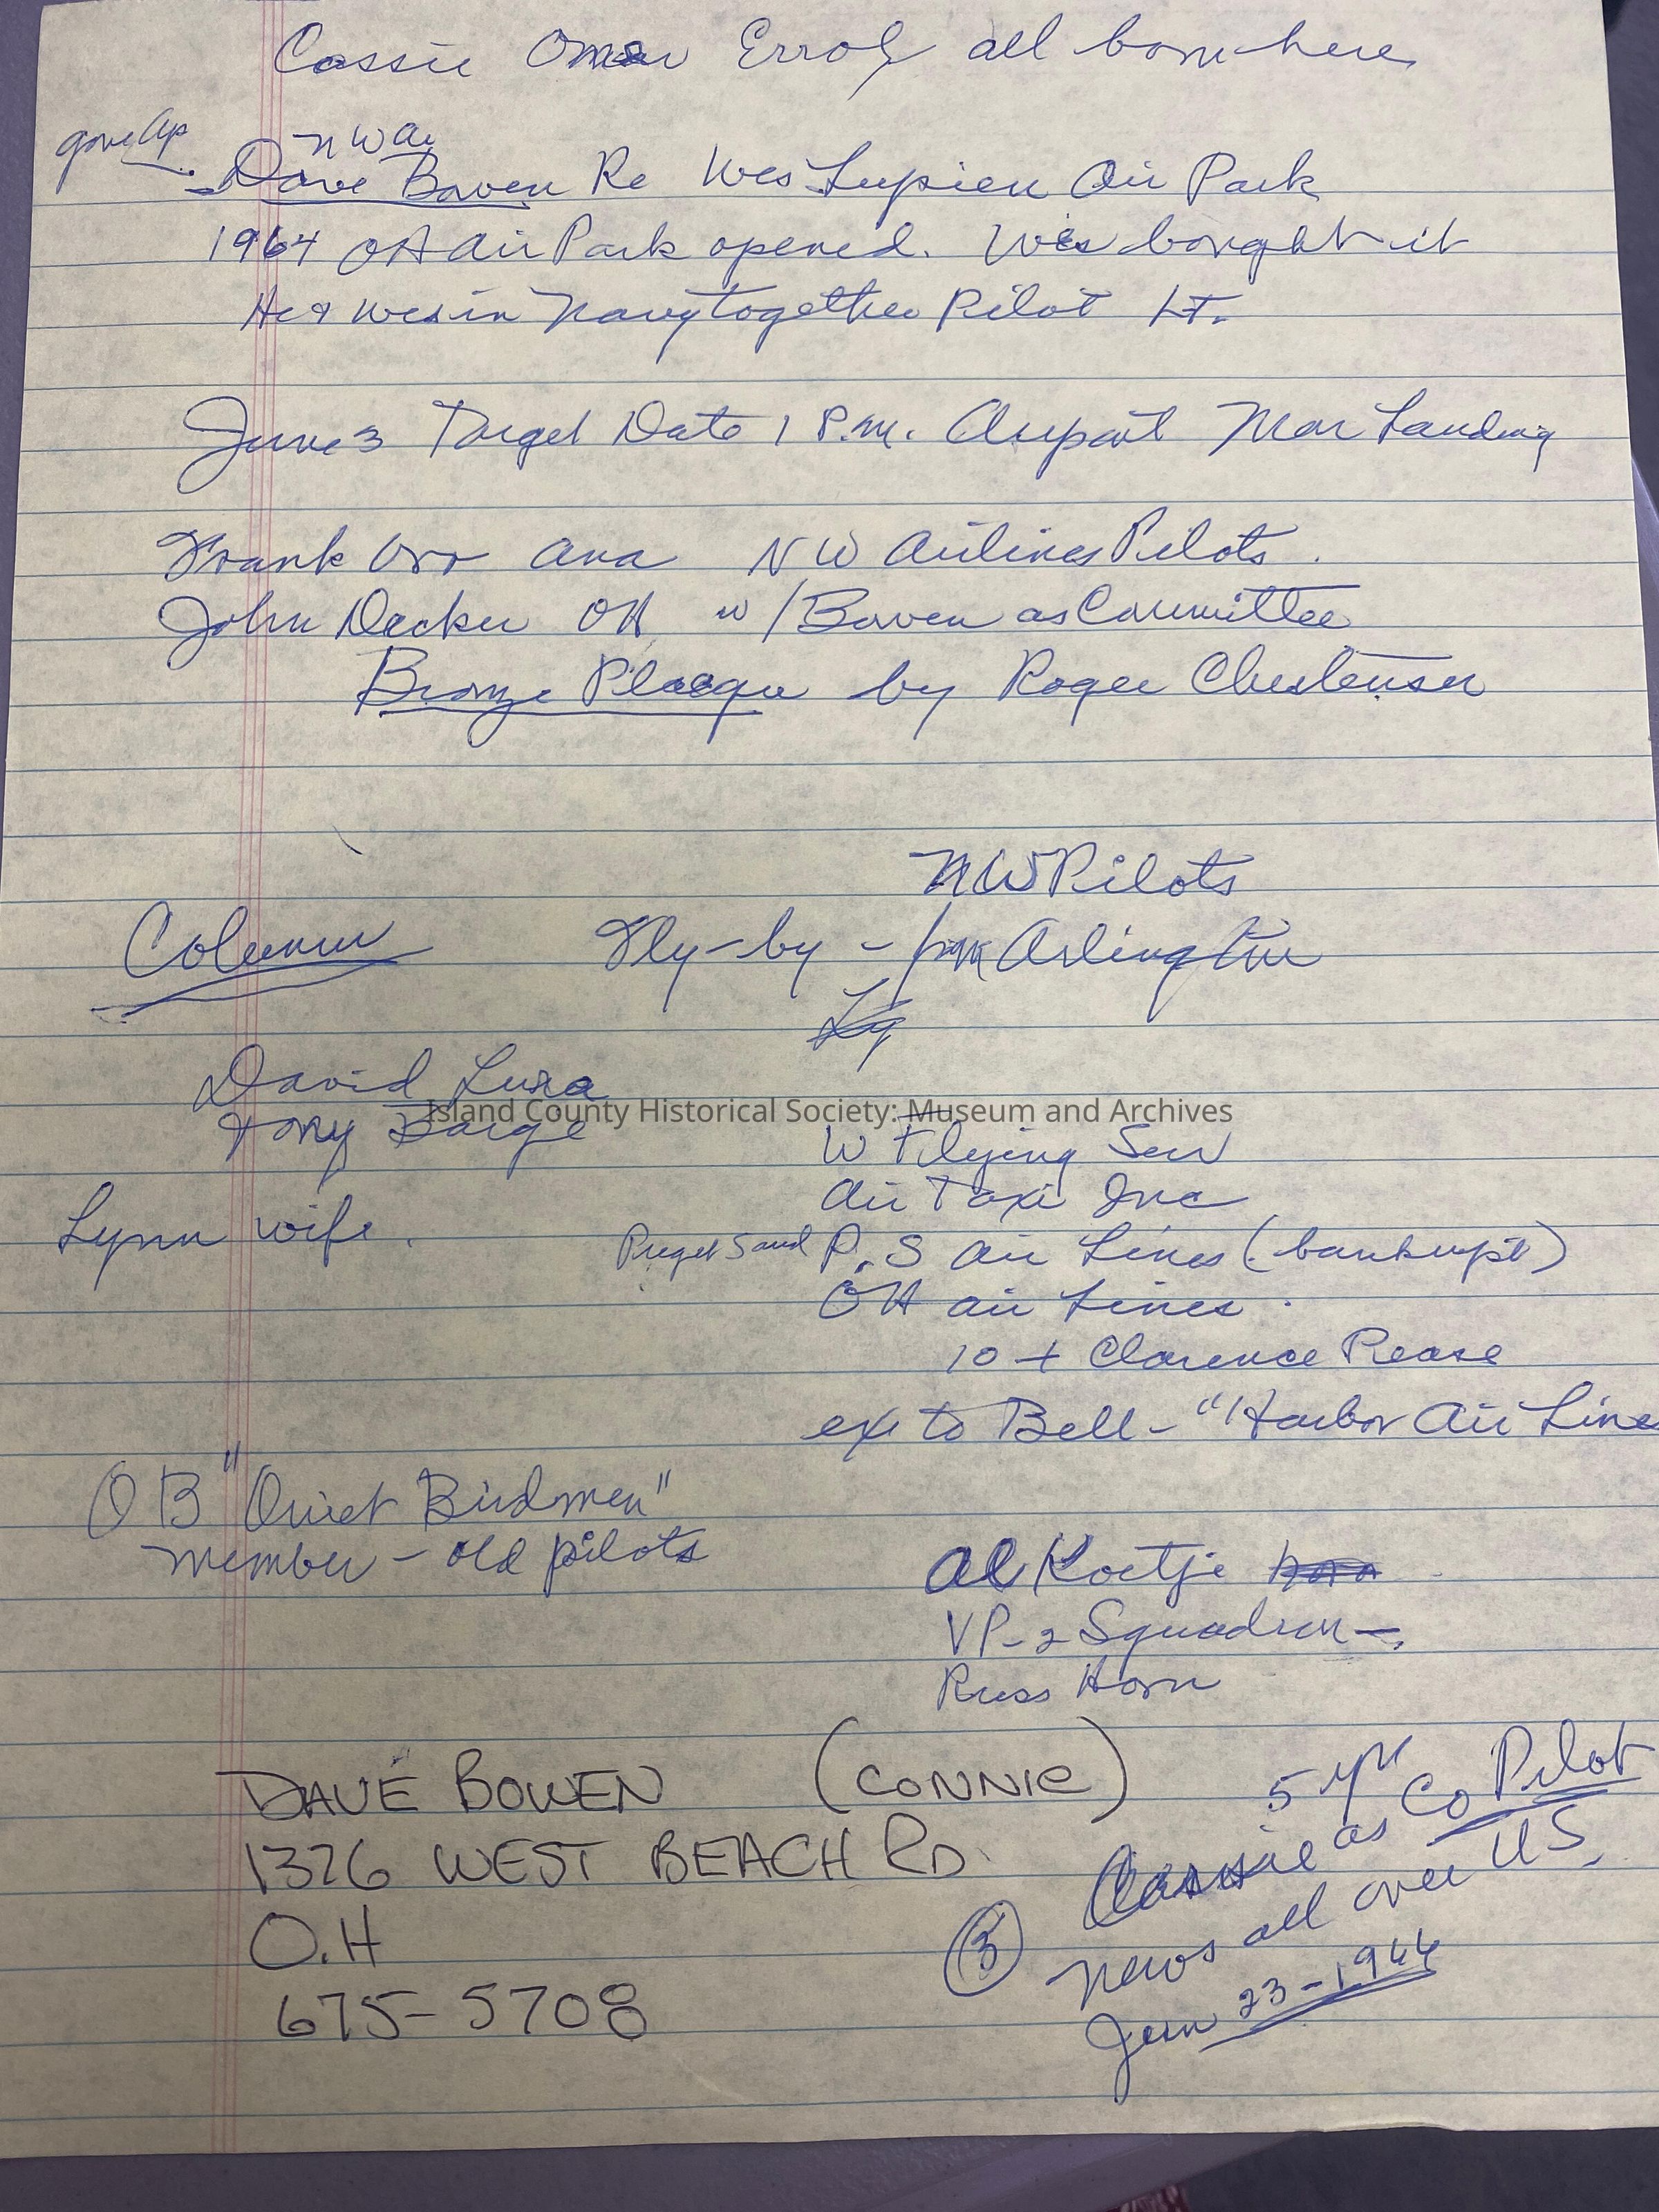 Cassie Omar Errol all born here
gave Ap
N W Air
Dave Bowen Re Wes Lupien Air Park
1964 OH Air Park opened. Wes bought it
He & Wes in Navy together Pilot LT.
June 3 Target Date 1 P.M. Airport Mar Landing
Frank Orr Ana NW Airlines Pilots.
John Decker OH w/Bowen as Committee
Bronze Plaque by Roger
NW Pilots
Column Fly-by - from Arlington
David Lura
Tony
Island County Historical Society: Museum and Archives
W Flying Serv
Air Taxi Inc
Lynn wife.
Puget Sound P.S Air Lines (bankrupt)
OH Air Lines.
10 + Clarence Rease
ex to Bell - "Harbor Air Line
QB "Quiet Birdmen"
member - old pilots
Al Koetje
VP-2 Squadron -
Russ Horn
DAVE BOWEN (CONNIE)
1326 WEST BEACH RD.
O.H
675-5708
5 yr
Cassie as Co Pilot
3 news all over US
Jun 23-1966